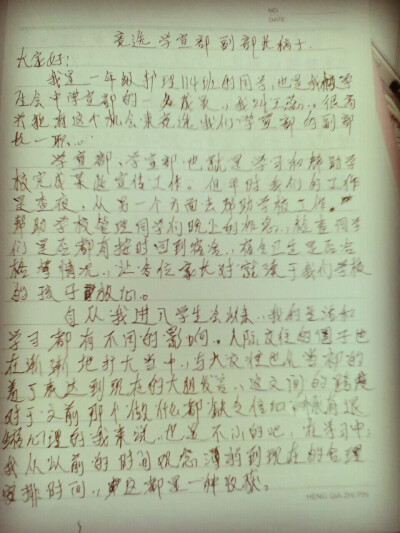 NO
DATE
竞选学宣部副部长稿子.
大家好:
我是一年级护理114班的同学,也是我们学
生会中学宣部的一名成员,我叫王,很高
兴抱有这个机会来竞选我们学宣部的副部
长一职,
学宣部、学宣部,也就是学习和帮助学
校完成某些宣传工作。但平时我们的工作
是查夜,从另一个方面去帮助学校工作。
帮助学校管理同学们晚上的,检查同学
们是否都有按时回到宿舍,宿舍卫生是否合
格等情况,让各位家长对就读于我们学校
的孩子放心。
自从我进入学生会以来,我的生活和
学习都有不同的影响。人际交往的圈子也
在渐渐地扩大当中,与人交往也从当初的
羞于表达到现在的大胆发言,这之间的跨度
对于之前那个做什么都缺乏信心,怀有退
缩心理的我来说,也是不小的吧,在学习中,
我从以前的时间观念薄弱到现在的合理
安排时间,这都是一种收获。
HENG QIA ZHI PIN